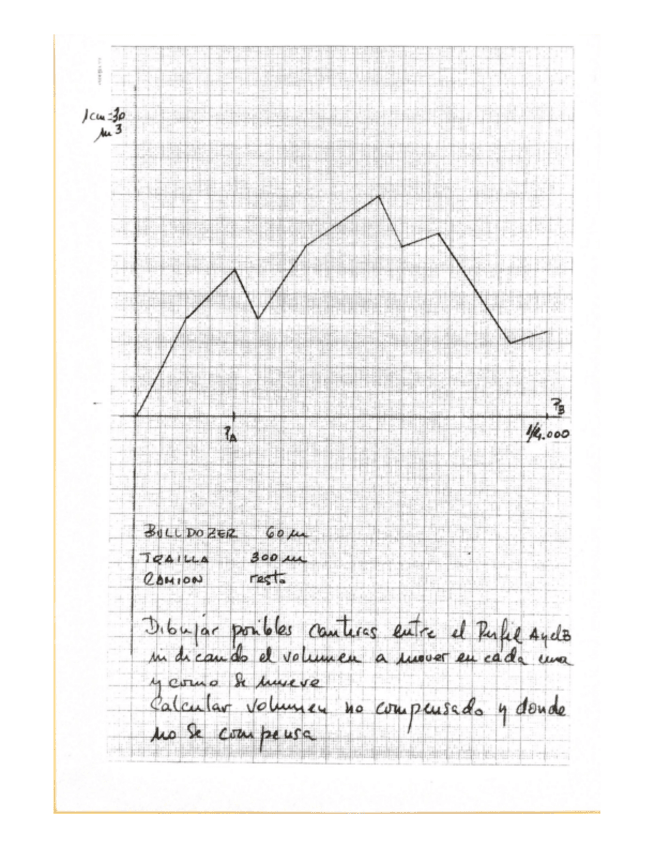 1cm=30
m3
PA
PB
1/4.000
BULLDOZER 60 m
TRAILLA 300 m
CAMION resto
Dibujar posibles canteras entre el Perfil A y el B
indicando el volumen a mover en cada una
y como se mueve
Calcular volumen no compensado y donde
no se compensa